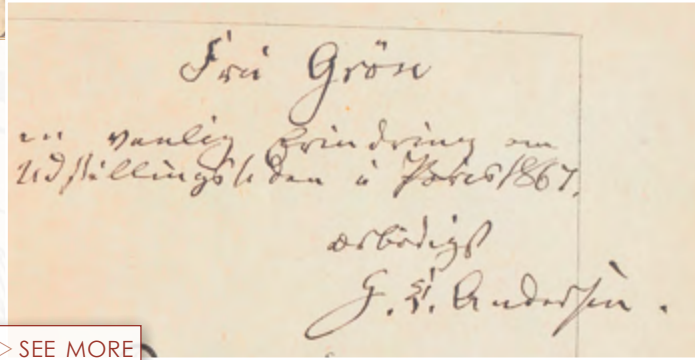 Frü Grön
en venlig Erindring om
Udstillingstiden i Paris 1867.
ærbødigst
H. C. Andersen.
> SEE MORE